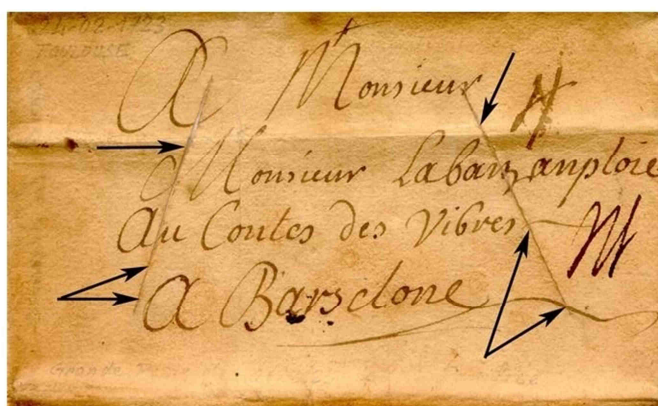 24-02-1723
Toulouse
A Monsieur
Monsieur Laban anploie
Au Contes des Vibres
A Barselone
Grande